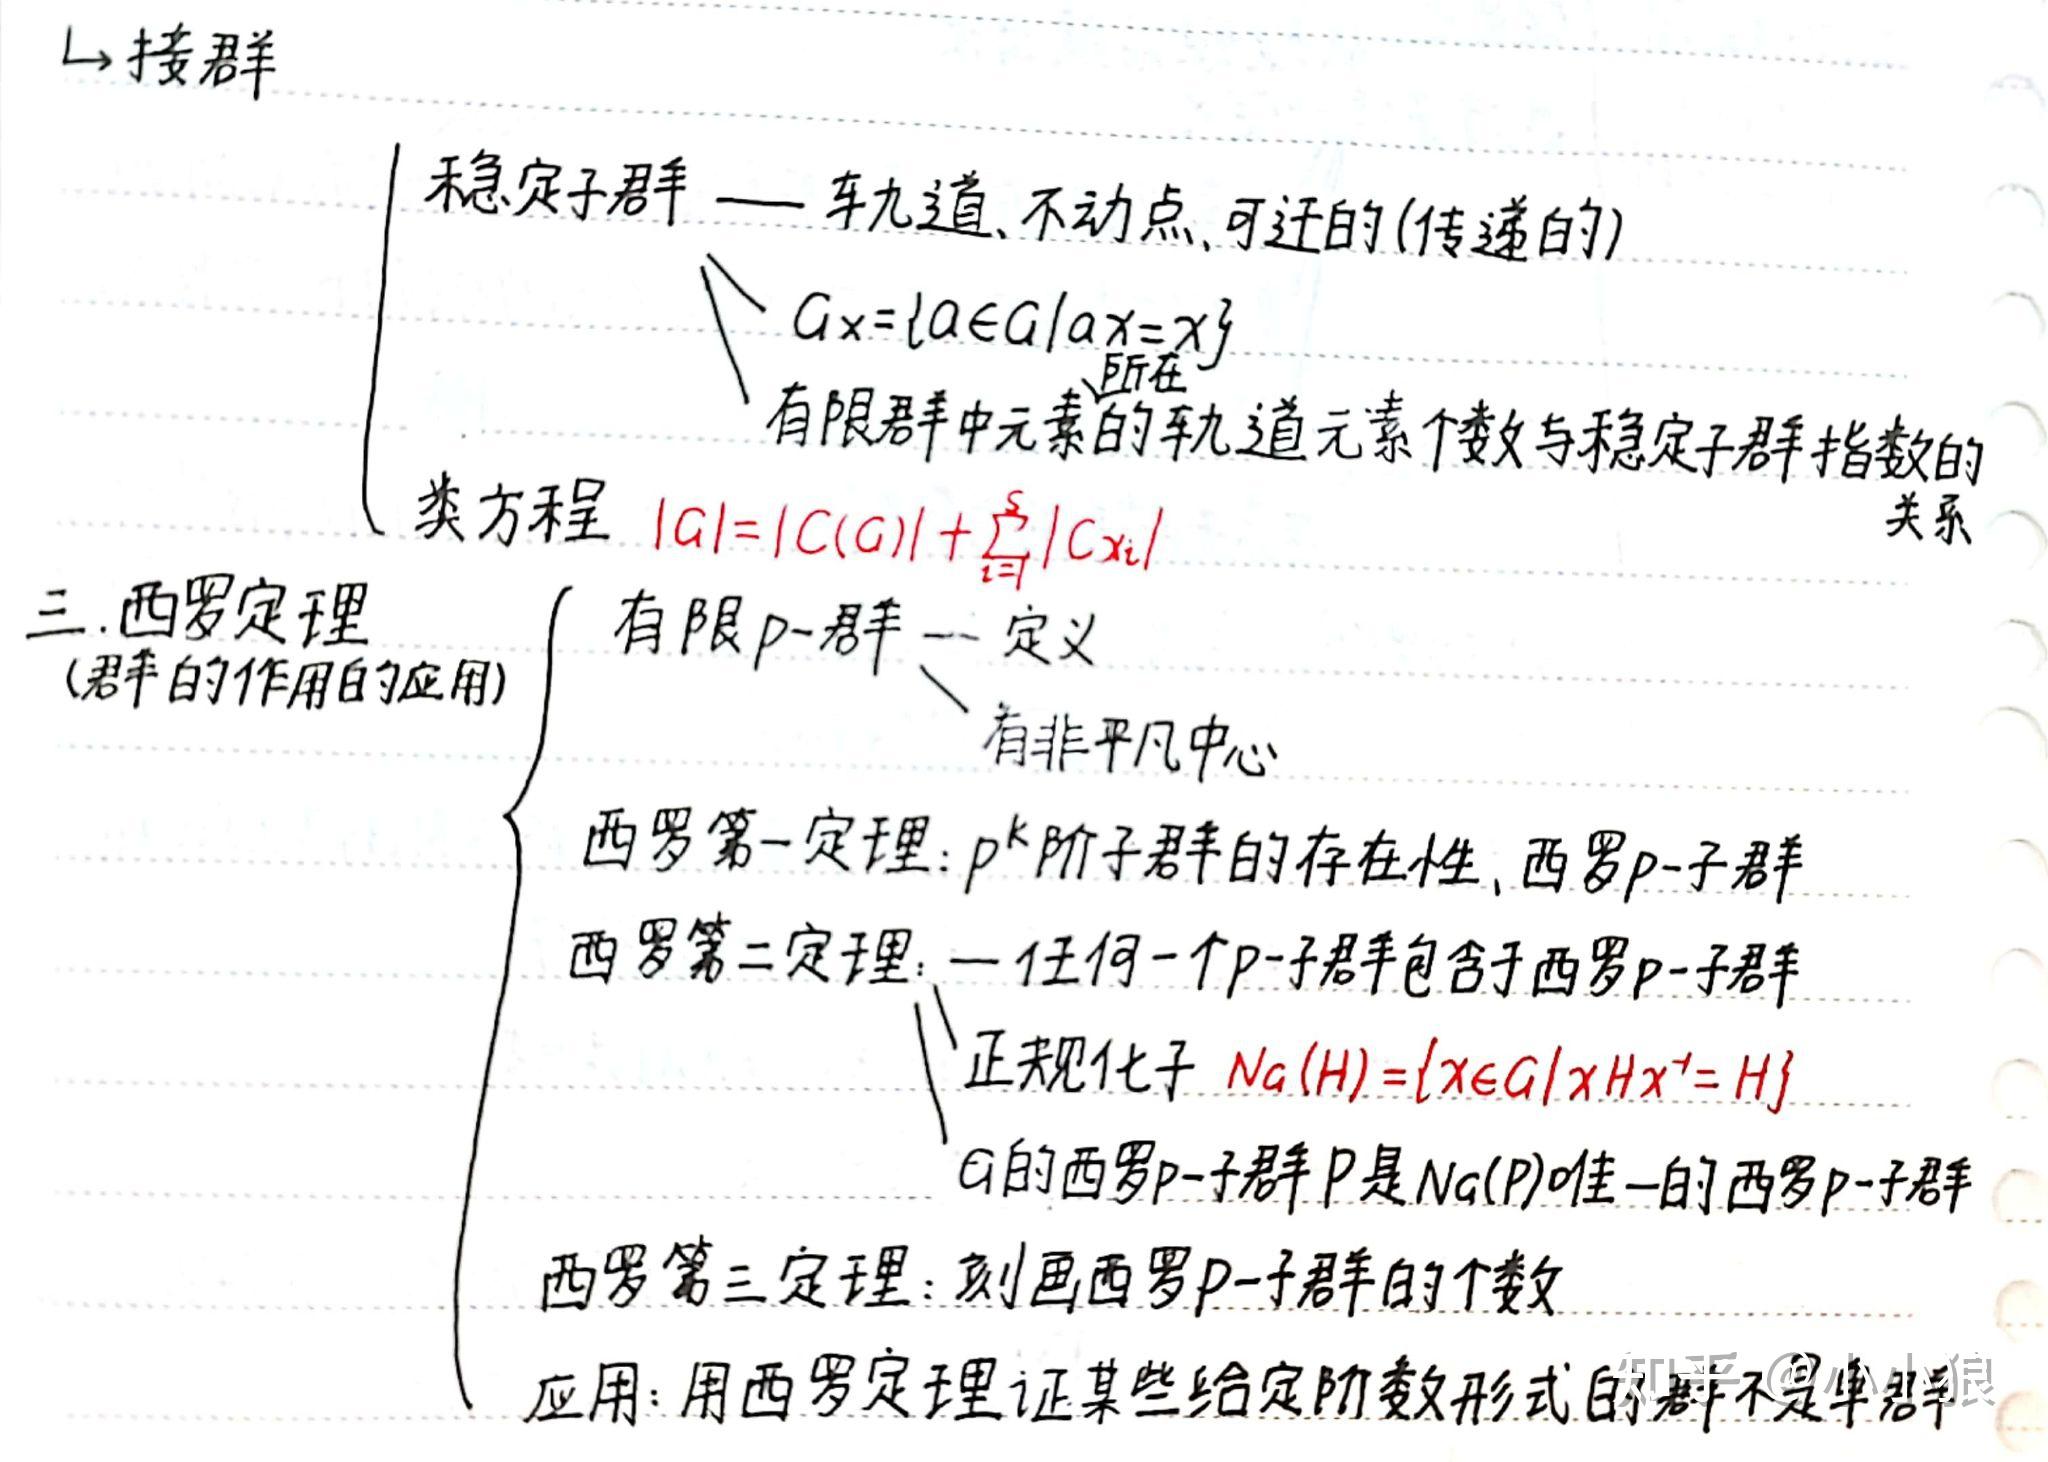 ↳接群
稳定子群 —— 轨道、不动点、可迁的(传递的)
Gx={a∈G|ax=x}
所在
有限群中元素的轨道元素个数与稳定子群指数的
关系
类方程 |G|=|C(G)|+∑_{i=1}^{s}|Cx_i|
三.西罗定理
(群的作用的应用)
有限p-群 — 定义
有非平凡中心
西罗第一定理: p^k阶子群的存在性、西罗p-子群
西罗第二定理: — 任何一个p-子群包含于西罗p-子群
正规化子 N_G(H)={x∈G|xHx⁻¹=H}
G的西罗p-子群P是N_G(P)唯一的西罗p-子群
西罗第三定理: 刻画西罗p-子群的个数
应用: 用西罗定理证某些给定阶数形式的群不是单群
知乎 @小小狼